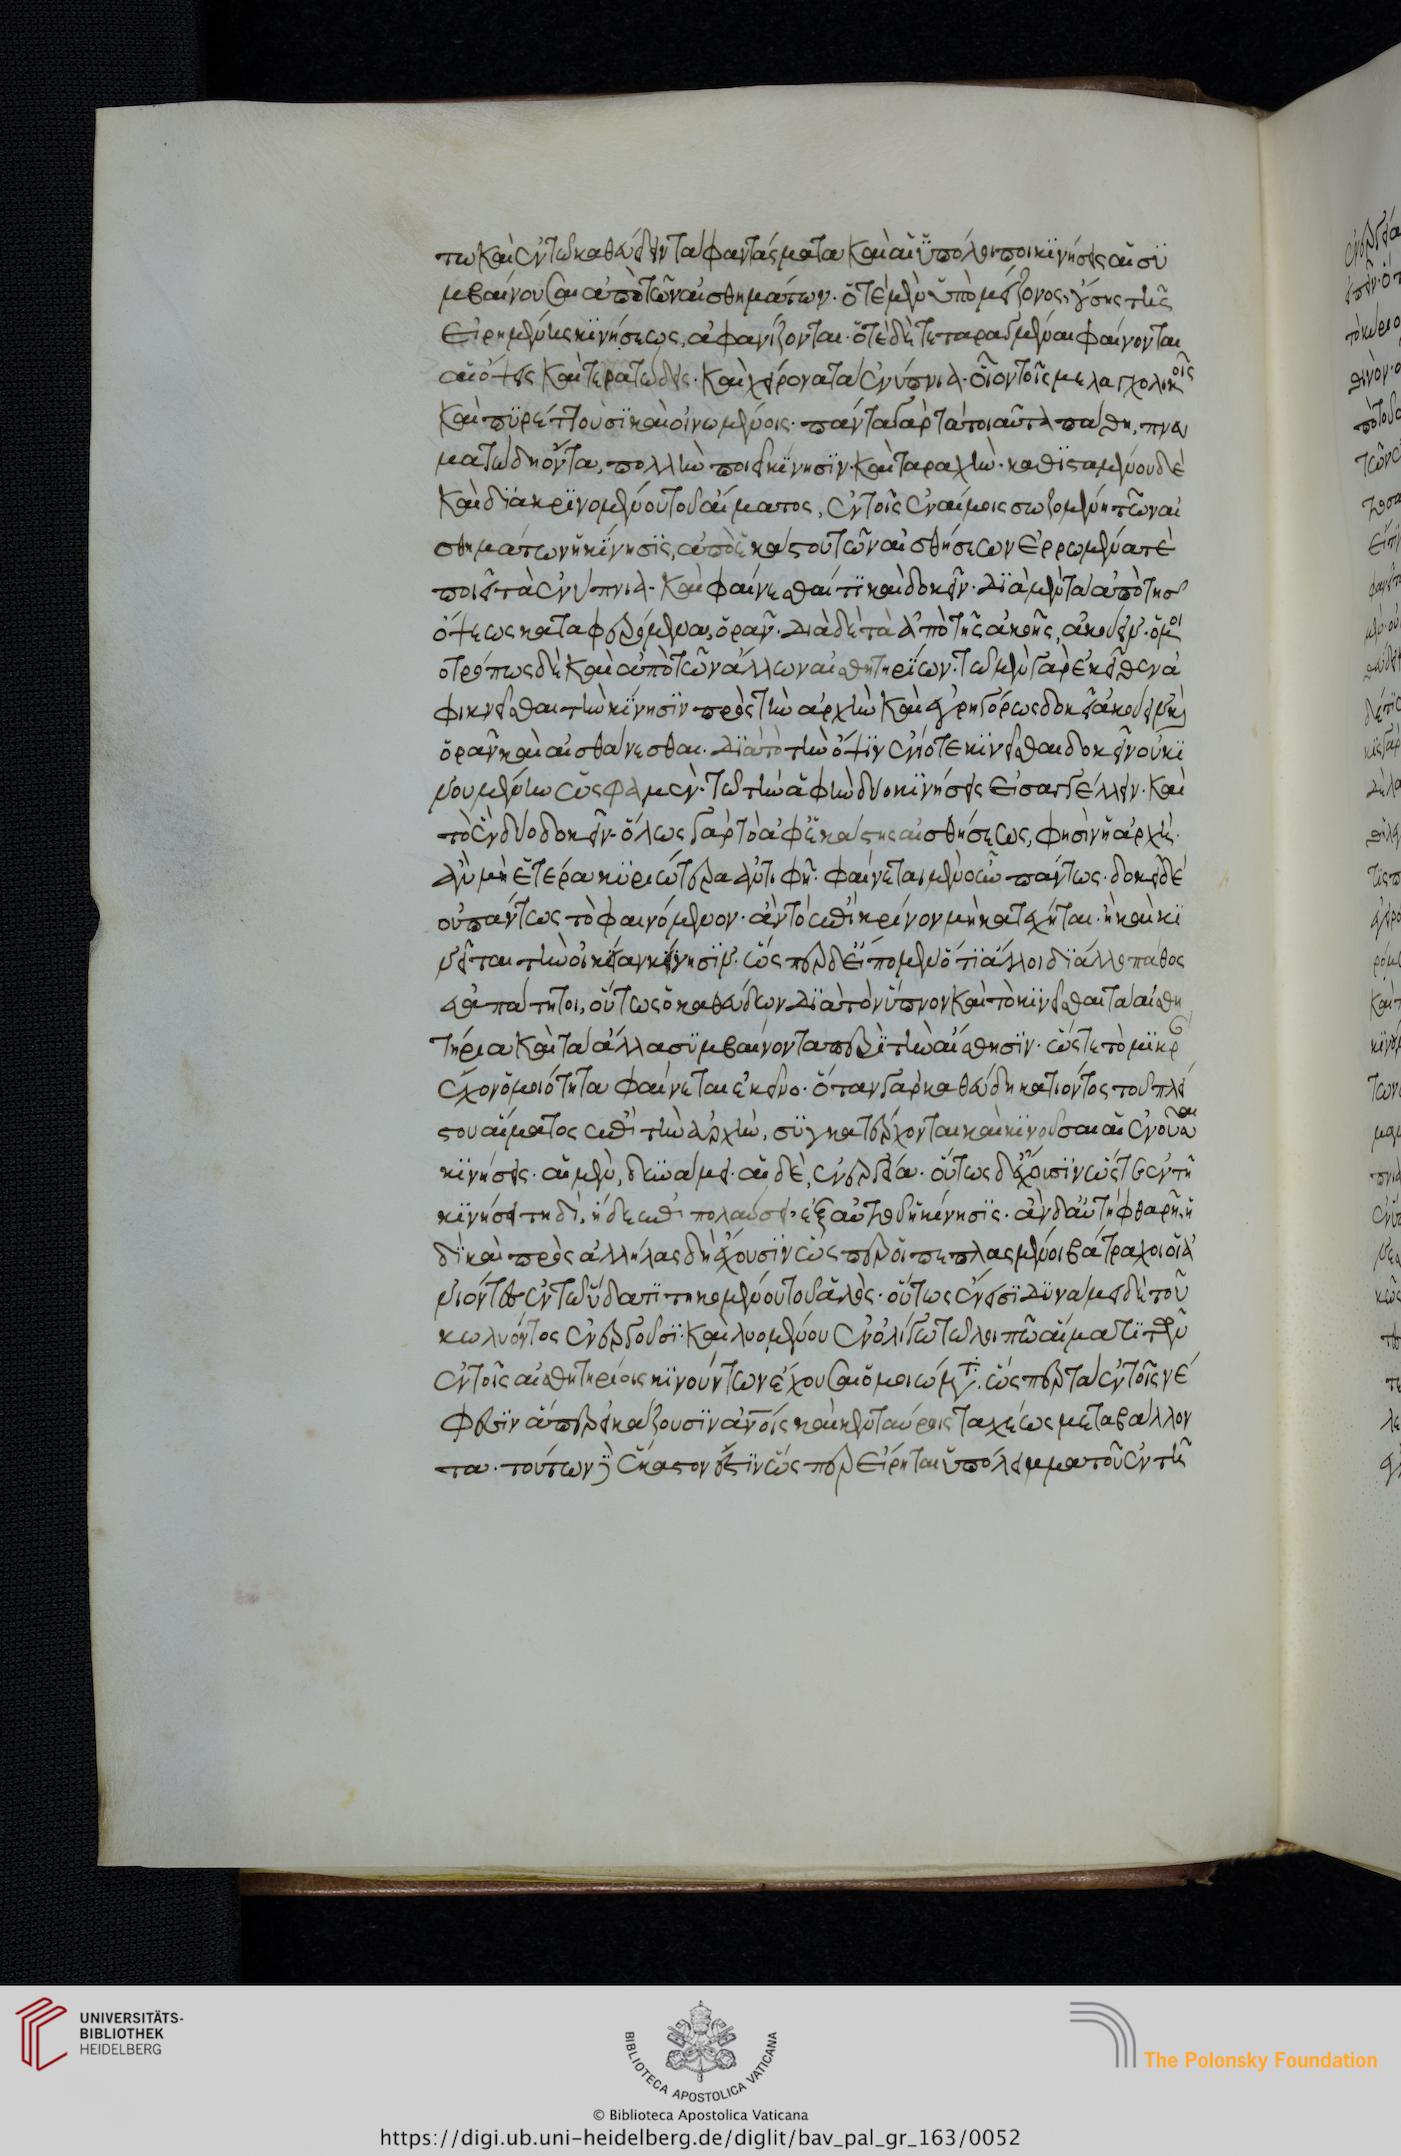 τω καὶ ἐν τῶ καθεύδειν τὰ φαντάσματα καὶ αἱ ὑπόλοιποι κινήσεις αἱ συ
μβαίνουσαι ἀπὸ τῶν αἰσθημάτων· ὁτὲ μὲν ὑπὸ μείζονος οὔσης τῆς
εἰρημένης κινήσεως, ἀφανίζονται· ὁτὲ δὲ τεταραγμέναι φαίνονται
αἱ ὄψεις καὶ τερατώδεις· καὶ χείρονα τὰ ἐνύπνια· οἷον τοῖς μελαγχολικοῖς
καὶ πυρέττουσι καὶ οἰνωμένοις· πάντα γὰρ τὰ τοιαῦτα πάθη, πνευ
ματώδη ὄντα, πολλὴν ποιεῖ κίνησιν καὶ ταραχήν· καθισταμένου δὲ
καὶ διακρινομένου τοῦ αἵματος, ἐν τοῖς ἐναίμοις σωζομένη τῶν αἰ
σθημάτων ἡ κίνησις, ἀπὸ ἑκάστου τῶν αἰσθήσεων ἐρρωμένα τὲ
ποιεῖ τὰ ἐνύπνια· καὶ φαίνεσθαί τι καὶ δοκεῖν· διὰ μὲν τὰ ἀπὸ τῆς
ὄψεως καταφερόμενα, ὁρᾶν· διὰ δὲ τὰ ἀπὸ τῆς ἀκοῆς, ἀκούειν· ὁμοι
οτρόπως δὲ καὶ ἀπὸ τῶν ἄλλων αἰσθητηρίων· τῶ μὲν γὰρ ἐκεῖθεν ἀ
φικνεῖσθαι τὴν κίνησιν πρὸς τὴν ἀρχὴν καὶ ἐγρηγόρως δοκεῖ ἀκούειν καὶ
ὁρᾶν καὶ αἰσθάνεσθαι· διὰ τὸ τὴν ὄψιν ἐνίοτε κινεῖσθαι δοκεῖν οὐ κι
νουμένην ὥς φαμεν· τῶ τὴν ἁφὴν δύο κινήσεις εἰσαγγέλλειν· καὶ
τὸ ἓν δύο δοκεῖν· ὅλως γὰρ τὸ ἀφ' ἑκάστης αἰσθήσεως, φησὶν ἡ ἀρχή·
ἐὰν μὴ ἑτέρα κυριωτέρα ἀντιφῆ· φαίνεται μὲν οὖν πάντως· δοκεῖ δὲ
οὐ πάντως τὸ φαινόμενον· ἂν τὸ ἐπικρίνον μὴ κατέχηται· ἢ καὶ κι
νεῖται τὴν οἰκείαν κίνησιν· ὥς περ δὲ εἴπομεν ὅτι ἄλλοι δι' ἄλλο πάθος
εὐαπάτητοι, οὕτως ὁ καθεύδων διὰ τὸν ὕπνον καὶ τὸ κινεῖσθαι τὰ αἰσθη
τήρια καὶ τὰ ἄλλα συμβαίνοντα περὶ τὴν αἴσθησιν· ὥς τε τὸ μικρὰν
ἔχον ὁμοιότητα φαίνεται ἐκεῖνο· ὅταν γὰρ καθεύδη κατιόντος τοῦ πλεί
στου αἵματος ἐπὶ τὴν ἀρχὴν, συγκατέρχονται καὶ κινοῦσαι αἱ ἐνοῦσαι
κινήσεις· αἱ μὲν, δυνάμει· αἱ δὲ, ἐνεργεία· οὕτως δ' ἔχουσιν ὥς τε ἐν τῆ
κινήσει τηδὶ, ἥδε ἐπιπολάσει· ἐξ αὐτῆς ἡ κίνησις· ἂν δ' αὕτη φθαρῆ, ἡ
δὶ καὶ πρὸς ἀλλήλας δὴ ἔχουσιν ὥς περ οἱ πεπλασμένοι βάτραχοι οἱ ἀ
νιόντες ἐν τῶ ὕδατι τηκομένου τοῦ ἁλός· οὕτως ἔνεισι δυνάμει δὲ τοῦ
κωλύοντος ἐνεργοῦσι· καὶ λυομένου ἐν ὀλίγω τῶ λοιπῶ αἵματι τῶ
ἐν τοῖς αἰσθητηρίοις κινοῦνται ἔχουσαι ὁμοιότητα· ὥς περ τὰ ἐν τοῖς νέ
φεσιν ἃ παρεικάζουσιν ἀνοῖς καὶ κενταύροις ταχέως μεταβάλλον
τα· τούτων δὲ ἕκαστόν ἐστιν ὥς περ εἴρηται ὑπόλειμμα τοῦ ἐν τῆ
UNIVERSITÄTS-
BIBLIOTHEK
HEIDELBERG
BIBLIOTECA APOSTOLICA VATICANA
The Polonsky Foundation
© Biblioteca Apostolica Vaticana
https://digi.ub.uni-heidelberg.de/diglit/bav_pal_gr_163/0052